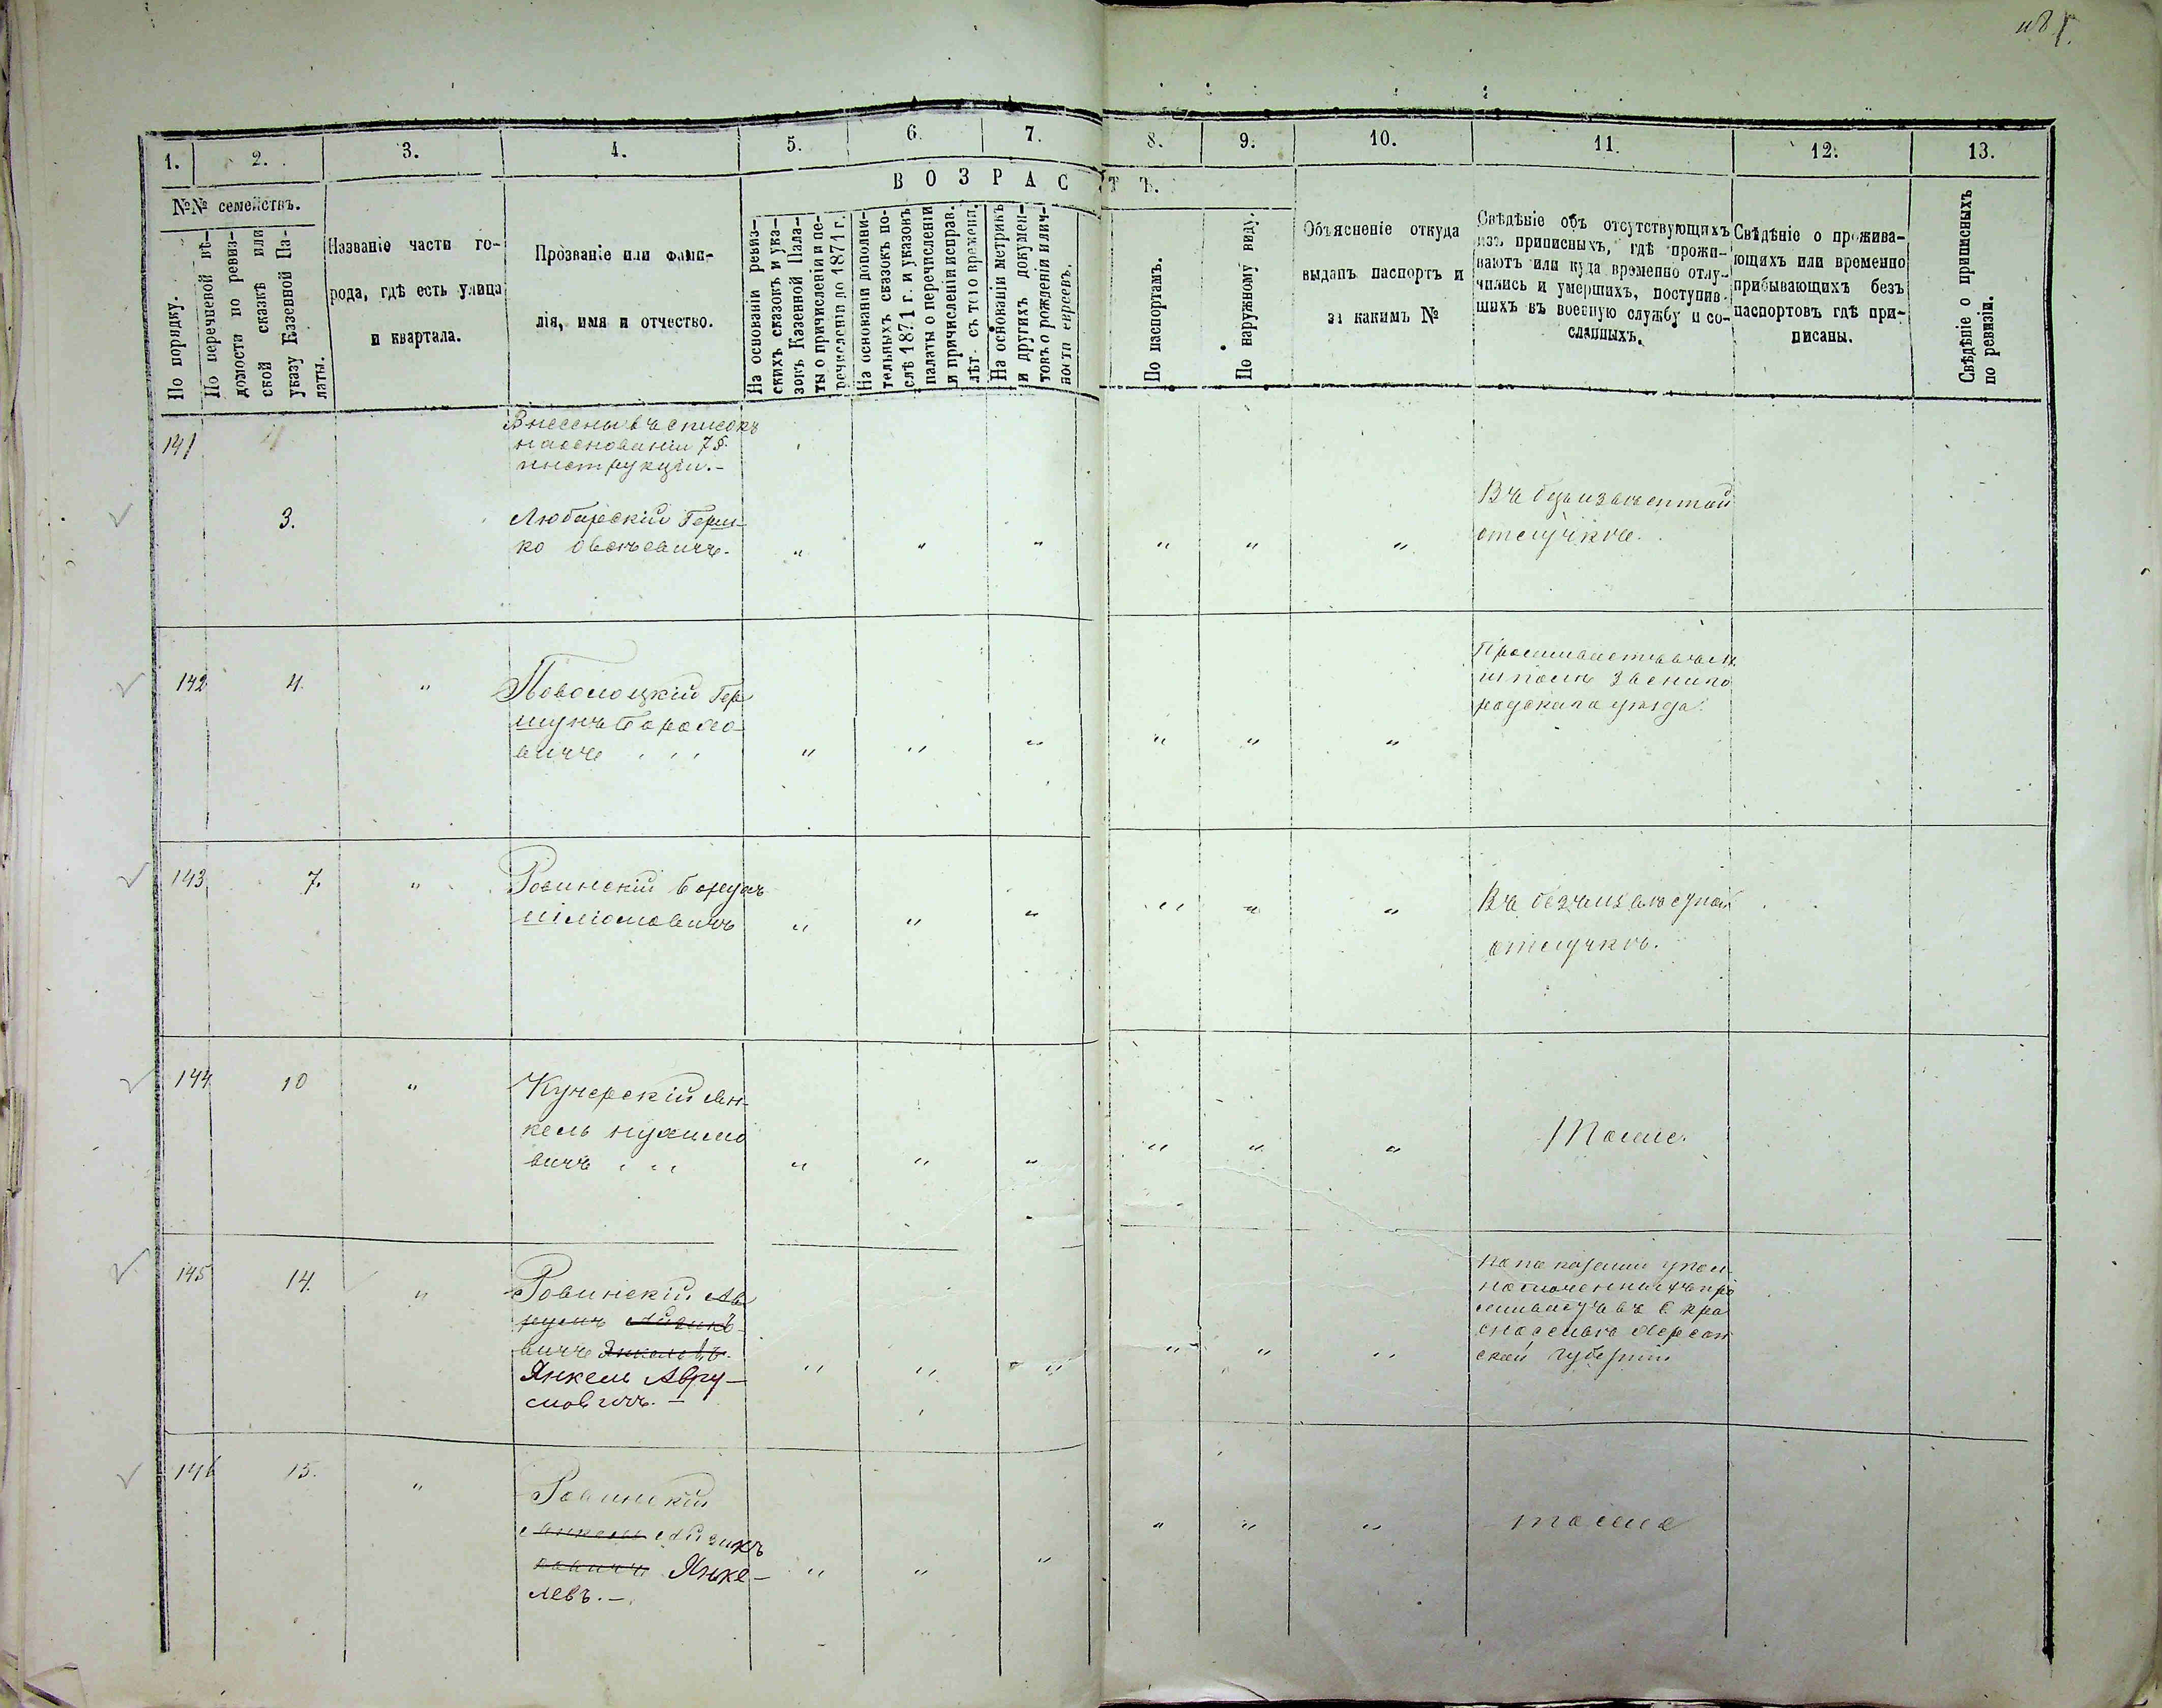 1.
2.
3.
4.
5.
6.
7.
8.
9.
10.
11.
12.
13.
ВОЗРАСТЪ.
№№ семействъ.
По порядку.
По перечневой вѣ-
домости по ревиз-
ской сказкѣ или
указу Казенной Па-
латы.
Названіе части го-
рода, гдѣ есть улица
и квартала.
Прозваніе или фами-
лія, имя и отчество.
На основаніи ревиз-
скихъ сказокъ и ука-
зовъ Казенной Пала-
ты о причисленіи и пе-
речисленіи до 1871 г.
На основаніи дополни-
тельныхъ сказокъ по-
слѣ 1871 г. и указовъ
палаты о перечисленіи
и причисленіи исправ.
лѣт. съ того времени.
На основаніи метрикъ
и другихъ докумен-
товъ о рожденіи и лич-
ности евреевъ.
По паспортамъ.
По наружному виду.
Объясненіе откуда
выданъ паспортъ и
за какимъ №
Свѣдѣніе объ отсутствующихъ
изъ приписныхъ, гдѣ прожи-
ваютъ или куда временно отлу-
чились и умершихъ, поступив-
шихъ въ военную службу и со-
сланныхъ.
Свѣдѣніе о прожива-
ющихъ или временно
прибывающихъ безъ
паспортовъ гдѣ при-
писаны.
Свѣдѣніе о приписныхъ
по ревизіи.
141
Внесены въ списокъ
на основаніи 7 §
инструкціи.-
3.
Любарскій Герш-
ко
" " " " " "
Въ безизвѣстной
отлучкѣ.
142 4. "
Поволоцкій Гер
шунъ
вичъ " " " " " "
Проживаетъ въ
Звениго
родскаго уѣзда.
143 7. "
Ровинскій Борухъ
Шліомовичъ " " " " " "
Въ безъизвѣстной
отлучкѣ.
144 10 "
Кучерскій Ян-
кель Нухимо
вичъ " " " " " "
Тоже.
145 14. "
Ровинскій Ав
румъ Айзико-
вичъ
Янкель Авру-
мовичъ.- " " " " " "
По показанію упол-
номоченныхъ про
живаетъ въ с. Кра
сноселкѣ Херсон
ской губерніи
146 15. "
Ровинскій
Янкель Айзикъ
Янке-
левъ.- " " " " " "
тоже